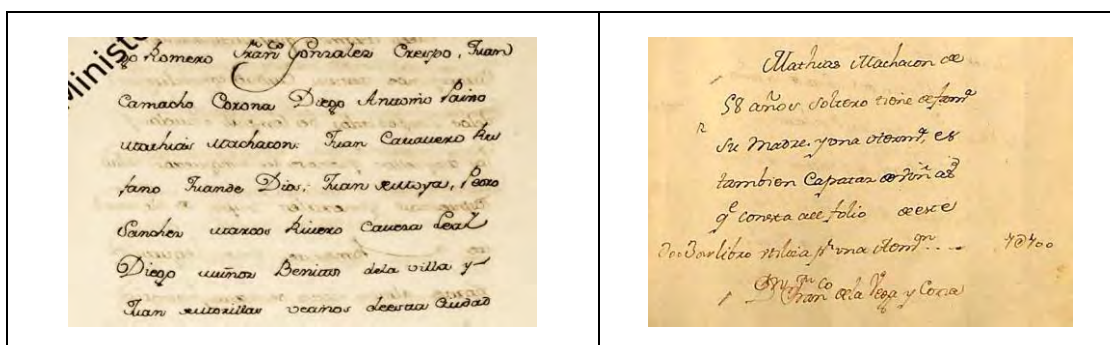 Minist
go Romero Franco Gonzalez Crespo, Juan
Camacho Corona Diego Antonio Paino
Mathias Machacon: Juan Cavavero Reu
fano Juan de Dios; Juan Pedro
Sanchez Marcos Rivero Cavera Leal
Diego muñoz Benitas dela villa y
Juan vecinos deesta Ciudad
Mathias Machacon de
58 años soltero tiene de fama
su Madre. y una erma, es
tambien Capataz de
qe consta del folio de este
libro utiliza pr una
Dn Franco de la Vega y Coria